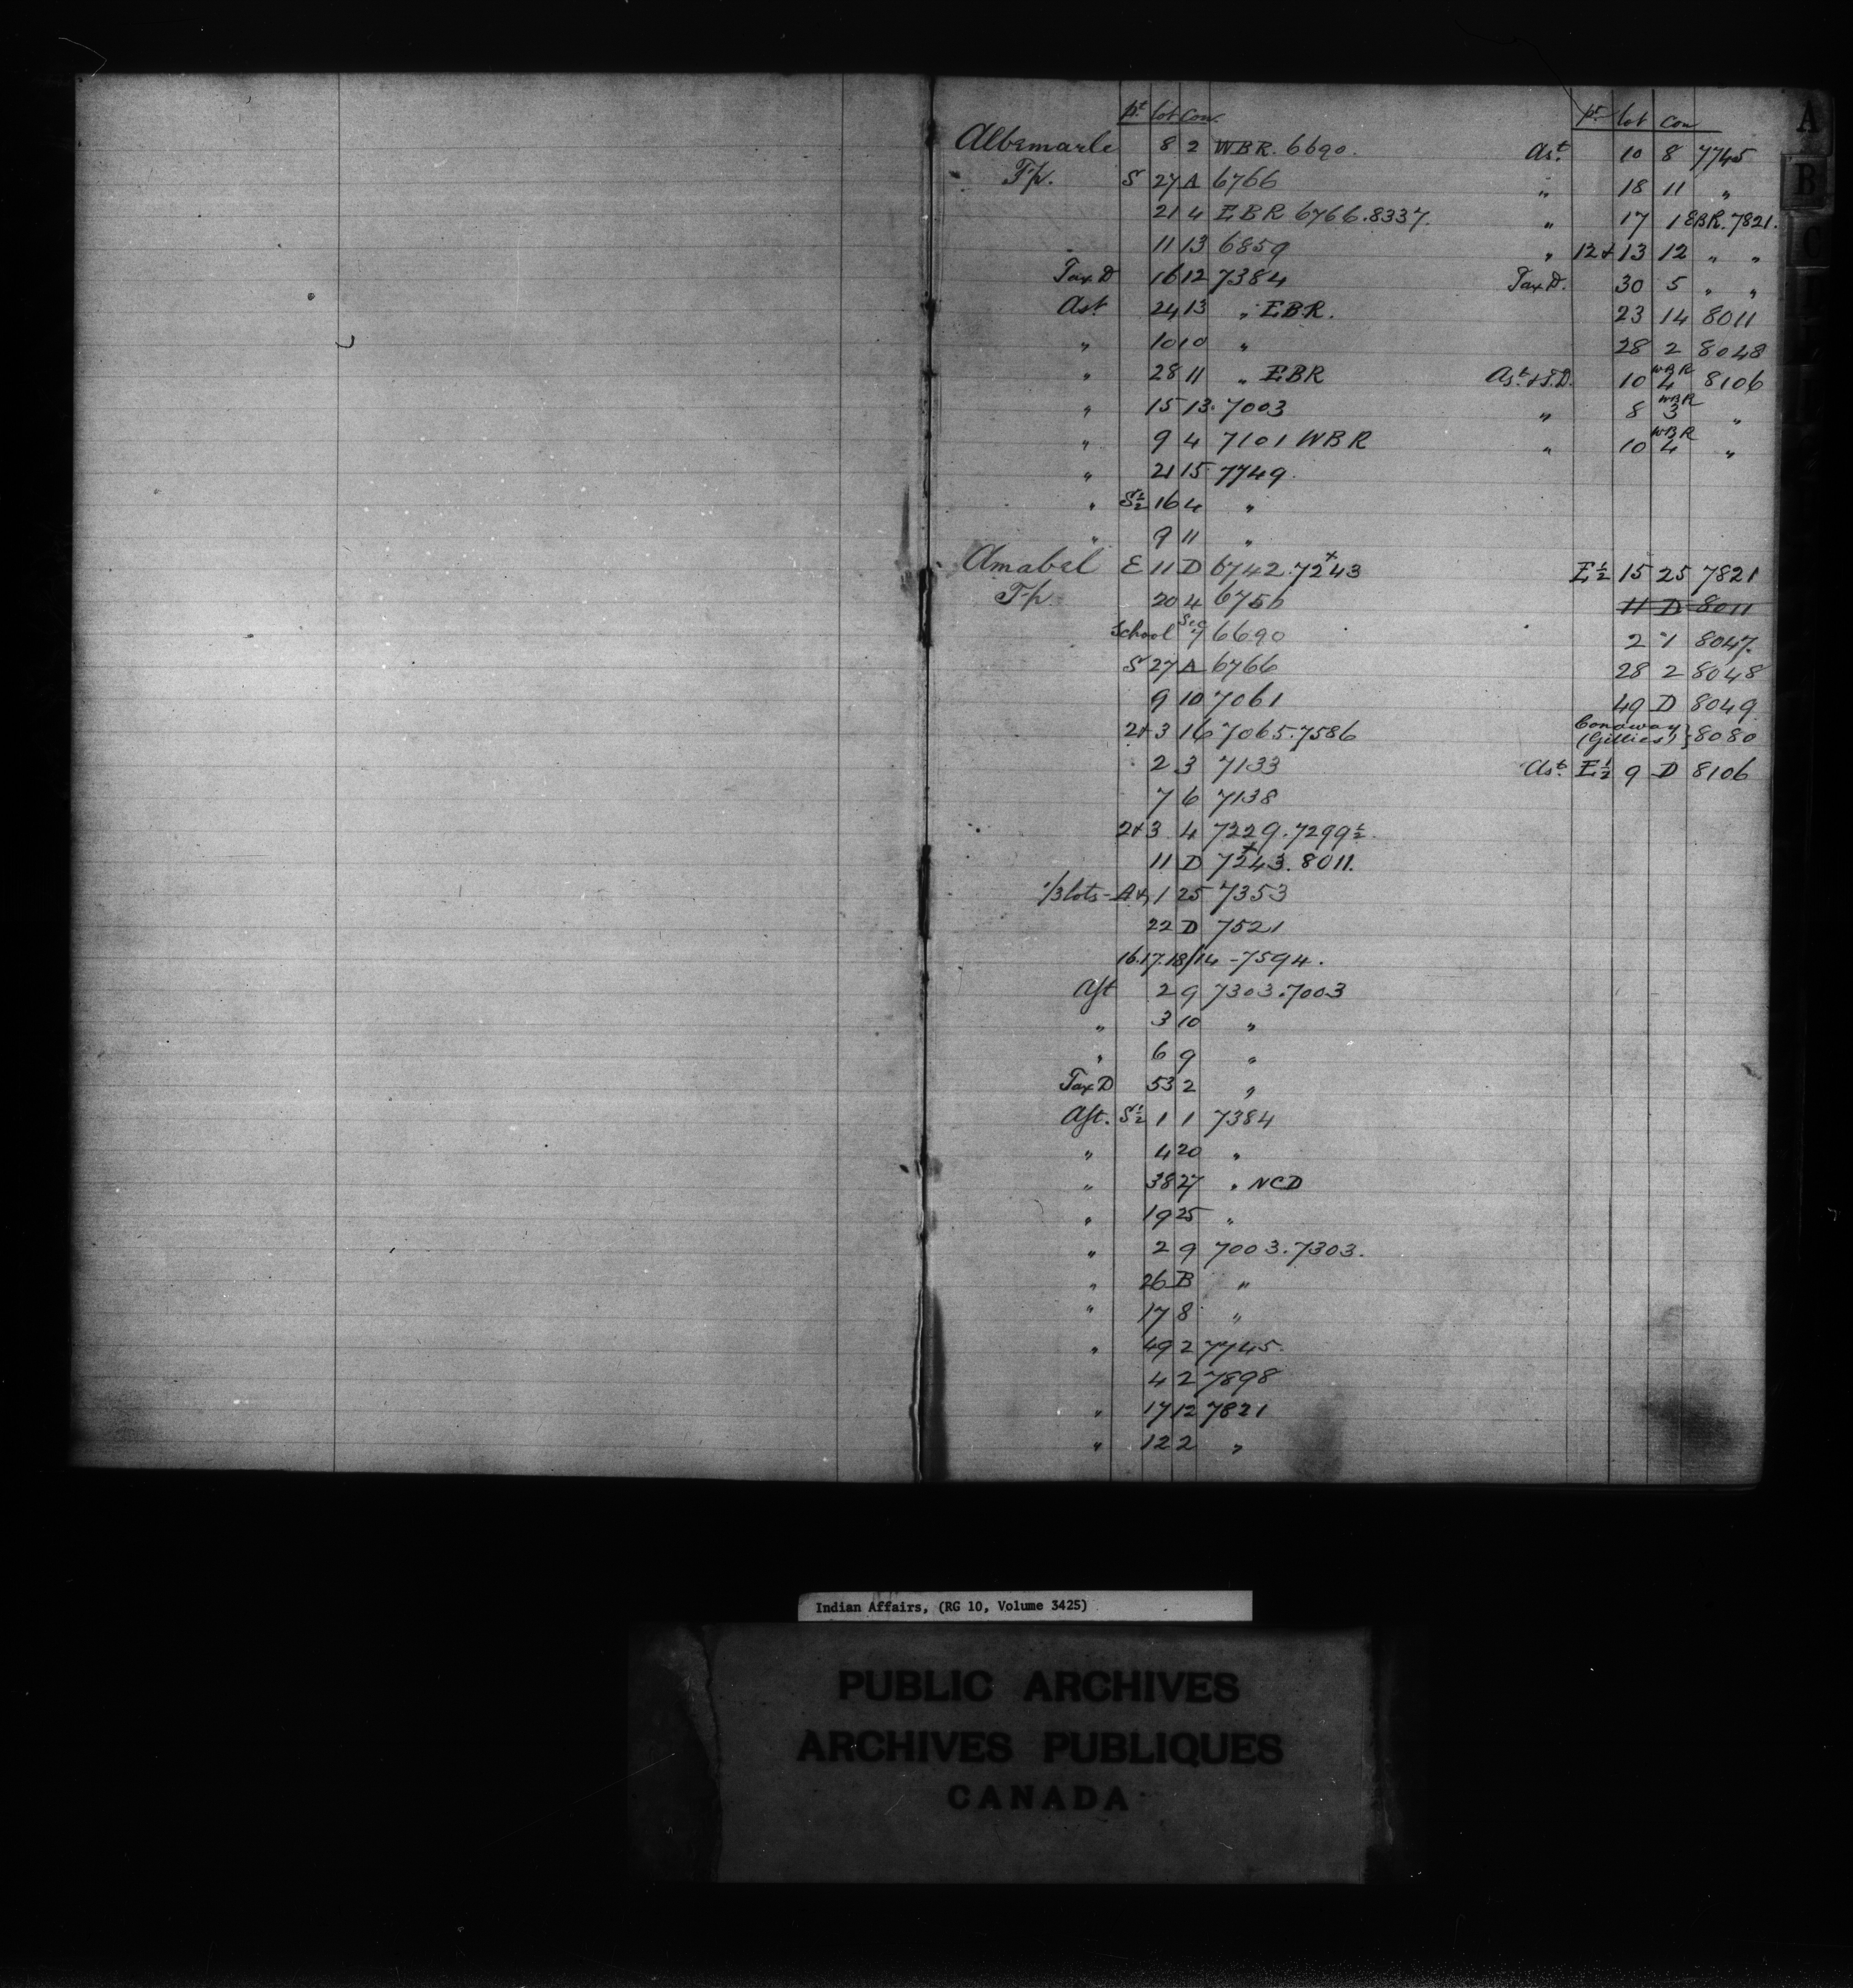 pt lot Con.
Albemarle 8 2 WBR. 6690.
T-p. S 27 A 6766
21 4 EBR 6766.8337.
11 13 6859
Tax D 16 12 7384
Ast 24 13 " EBR.
" 10 10 "
" 28 11 " EBR
" 15 13. 7003
" 9 4 7101 WBR
" 21 15 7749.
" S½ 16 4 "
" 9 11 "
Amabel E 11 D 6742.72+43
T-p. 20 4 6756
School Sec 7 6690
S 27 A 6766
9 10 7061
2+3 16 7065.7586
2 3 7133
7 6 7138
2+3 4 7229.7299½
11 D 72+43. 8011.
1/3 lots - A+, 1 25 7353
22 D 7521
16.17.18/14 - 7594.
Ast 2 9 7303.7003
" 3 10 "
" 6 9 "
Tax D 53 2 "
Ast. S½ 1 1 7384
" 4 20 "
" 38 27 " NCD
" 19 25 "
" 2 9 7003.7303.
" 26 B "
" 17 8 "
" 49 2 7745.
4 2 7898
" 17 12 7821
" 12 2 "
pt lot Con
Ast. 10 8 7745
" 18 11 "
" 17 1 EBR. 7821.
" 12+13 12 " "
Tax D. 30 5 " "
23 14 8011
28 2 8048
Ast. + T.D. 10 WBR 4 8106
" 8 WBR 3 "
" 10 WBR 4 "
E½ 15 25 7821
11 D 8011
2 7 8047.
28 2 8048
49 D 8049
Conaway
(Gillies) } 8080
Ast. E½ 9 D 8106
A
B
C
Indian Affairs, (RG 10, Volume 3425)
PUBLIC ARCHIVES
ARCHIVES PUBLIQUES
CANADA